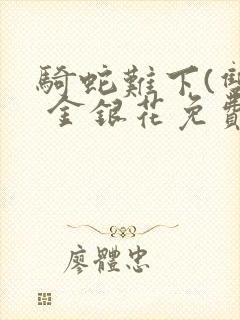 騎蛇難下(雙
金銀花免費
廖體忠